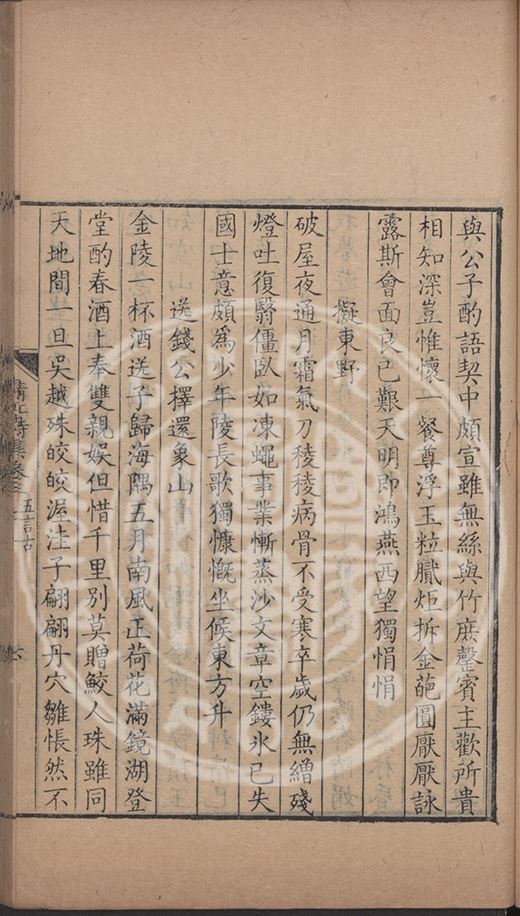 與公子酌語契中頗宣雖無絲與竹庶罄賓主歡所貴
相知深豈惟懷一餐尊浮玉粒膩炬拆金葩圓厭厭詠
露斯會面良已艱天明即鴻燕西望獨悁悁
擬東野
破屋夜通月霜氣刀稜稜病骨不受寒卒歲仍無繒殘
燈吐復翳僵臥如凍蠅事業慚蒸沙文章空鏤氷已失
國士意頗為少年陵長歌獨慷慨坐候東方升
送錢公擇還象山
金陵一杯酒送子歸海隅五月南風正荷花滿鏡湖登
堂酌春酒上奉雙親娛但惜千里別莫贈鮫人珠雖同
天地間一旦吳越殊皎皎渥洼子翩翩丹穴雛悵然不
五言古